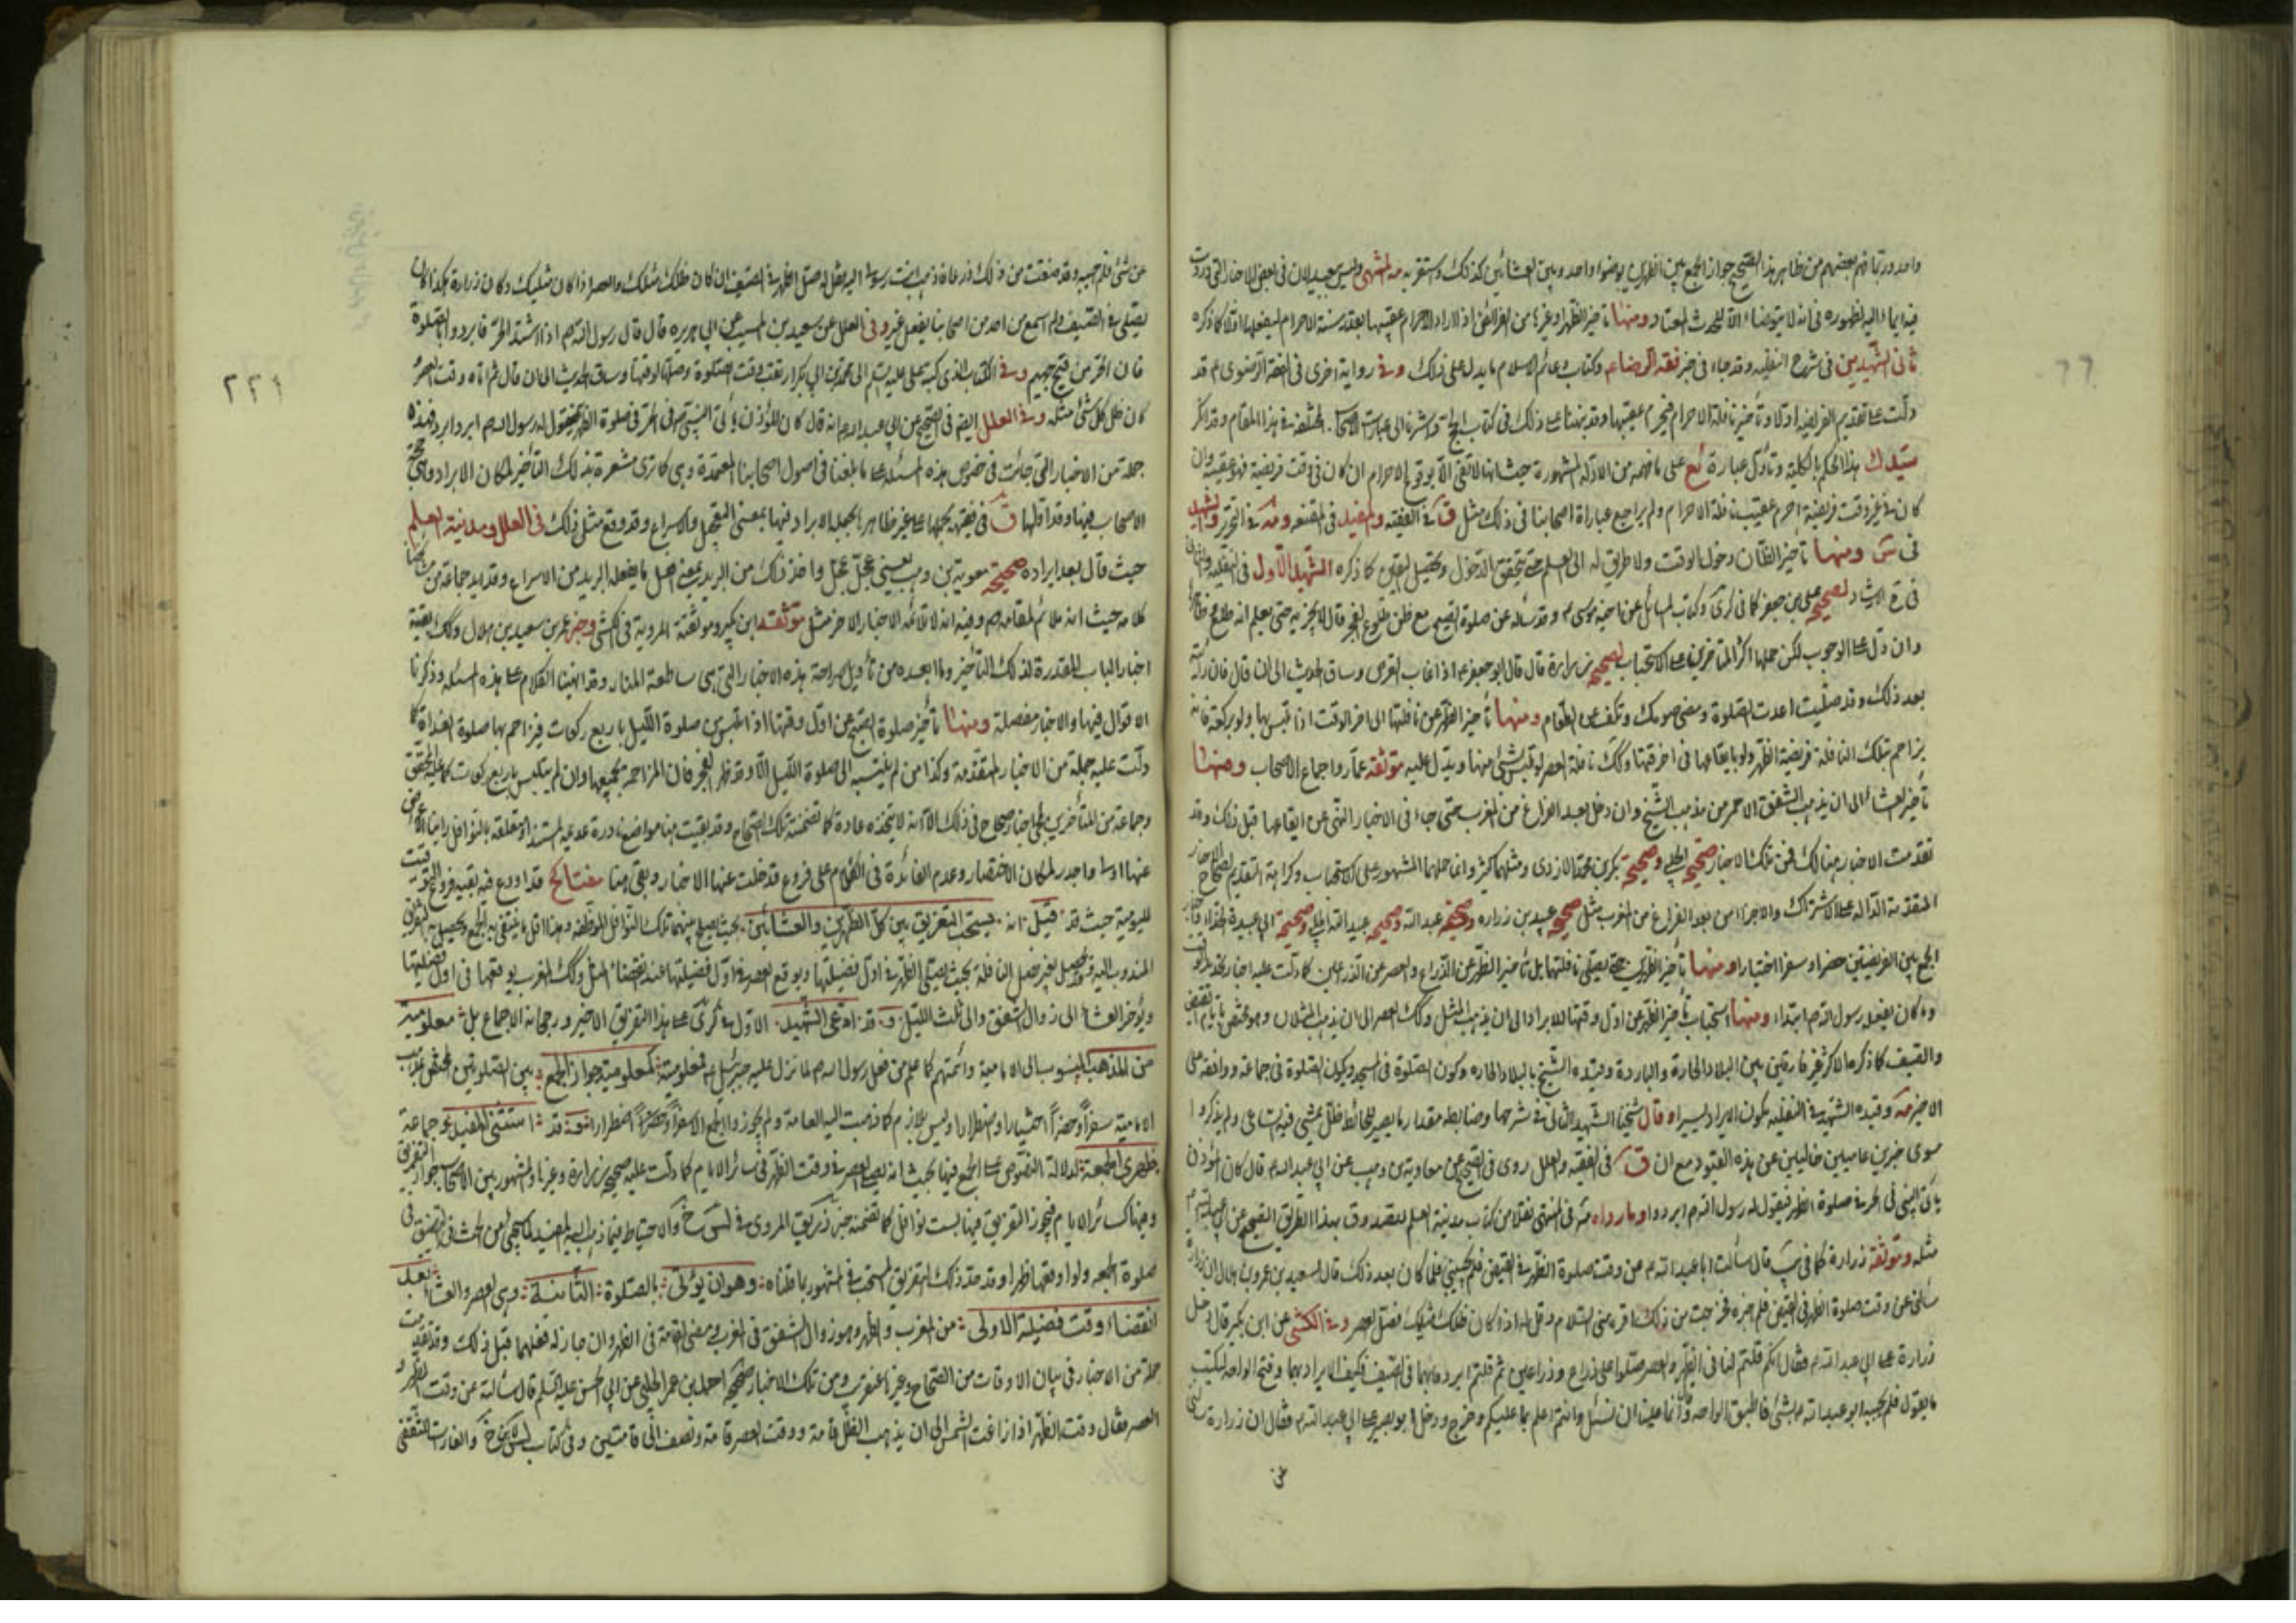 واحد وربما فهم بعضهم من ظاهر هذا الصحيح جواز الجمع بين الظهرين بوضوء واحد وبين العشائين كذلك واستقر به مه المنتهى وليس ببعيد لان في بعض الاخبار التي وردت
فيه ايماء اليه لظهوره في انه لا يتوضاء الا للحدث المعتاد ومنها تأخير الظهر وغيرها من الفرائض اذا اراد الاحرام عقيبها بعد سنة الاحرام ليفعلها اولا كما ذكره
ثاني الشهيدين في شرح النفلية وقد جاء في خبر فقه الرضاع وكتاب دعائم الاسلام ما يدل على ذلك وفي رواية اخرى في الفقه الرضوي ع قد
دلت على تقديم الفريضة اولا وتأخير نافلة الاحرام فيحرم عقيبها وقد بيننا على ذلك في كتاب الحج واشرنا الى عبارات الاصحاب المختلفة في هذا المقام وقد انكر
سيد ك هذا الحكم بالكلية وتأول عبارة ئع على ما فهمه من الادلة المشهورة حيث انها لا تقتضي الا بوقوع الاحرام ان كان في وقت فريضة فهو عقيبه وان
كان في غير وقت فريضة احرم عقيب نافلة الاحرام ولم يراجع عبارات اصحابنا في ذلك مثل ق في الفقيه والمفيد في المقنعه ومه في التحرير والشهيد
في س ومنها تأخير الظان دخول الوقت ولا طريق له الى العلم حتى يتحقق الدخول ويحصل اليقين كما ذكره الشهيد الاول في النفلية
لصحيح علي بن جعفر كما في كرى وكتاب المسائل عن اخيه موسى ع وقد سأله عن صلوة الصبح مع ظن طلوع الفجر قال لا يجزيه حتى يعلم انه طلع
وان دل على الوجوب لكن حملها اكثر المتأخرين على الاستحباب لصحيح زرارة قال قال ابو جعفر ع اذا غاب القرص وساق الحديث الى ان قال فان رأيته
بعد ذلك وقد صليت اعدت الصلوة ومضى صومك وتكف عن الطعام ومنها تأخير الظهر عن نافلتها الى اخر الوقت اذا تلبس بها ولو بركعة فانه
يزاحم بتلك النافلة فريضة الظهر ولو بايقاعها في اخر وقتها وكك نافلة العصر لو تلبس بشئ منها ويدل عليه موثقة عمار واجماع الاصحاب ومنها
تأخير العشاء الى ان يذهب الشفق الاحمر من مذهب الشيخ وان دخل بعد الفراغ من المغرب حتى جاء في الاخبار النهي عن ايقاعها قبل ذلك وقد
تقدمت الاخبار هنالك فمن تلك الاخبار صحيح الحلبي وصحيحة بكر بن محمد الازدي ومثلهما كثير وانما حملها المشهور على الاستحباب وكراهة التقديم لصحاح
المتقدمة الدالة على الاشتراك والاجزاء من بعد الفراغ من المغرب مثل صحيح عبيد بن زراره وصحيحة عبد الله وصحيح عبيد الله الحلبي وصحيحة ابي عبيدة الحذاء
الجمع بين الفريضتين حضرا وسفرا اختيارا ومنها تأخير الظهرين حتى يصلي نافلتهما بل تأخير الظهر عن الذراع والعصر عن الذراعين كما دلت عليه اخبار
وما كان يفعله رسول الله ص ابتداء ومنها استحباب تأخير الظهر عن اول وقتها للابراد الى ان يذهب المثل وكك العصر الى ان يذهب المثلان وهو مختص بايام
والصيف كما ذكره الاكثر غير فارقين بين البلاد الحارة والباردة وقيده الشيخ بالبلاد الحاره وكون الصلوة في المسجد وكون الصلوة في جماعة ووافقه على
الاخير مه وقيده الشهيد في النفلية بكون الابراد يسيرا وقال شيخنا الشهيد الثاني في شرحها وضابطه مقدار ما يصير للحائط ظل يمشي فيه الساعي ولم يذكروا
سوى خبرين عاميين خاليين عن هذه القيود مع ان ق في الفقيه والعلل روى في الصحيح عن معاوية بن وهب عن ابي عبد الله ع قال كان المؤذن
يأتي النبي في الحر في صلوة الظهر فيقول له رسول الله ص ابرد ابرد وما رواه مه في المنتهى نقلا من كتاب مدينة العلم للصدوق بهذا الطريق الصحيح عن
مثله وموثقة زرارة كما في يب قال سألت ابا عبد الله ع عن وقت صلوة الظهر في القيظ فلم يجبني فلما كان بعد ذلك قال لسعيد بن عمرو بن هلال ان زرارة
سألني عن وقت صلوة الظهر في القيظ فلم اخبره فحرجت من ذلك فاقرءه مني السلام وقل له اذا كان ظلك مثلك فصل العصر وفي الكشي عن ابن بكير قال دخل
زرارة على ابي عبد الله ع فقال انكم قلتم لنا في الظهر والعصر صلوا على ذراع وذراعين ثم قلتم ابردوا بهما في الصيف فكيف الابراد بهما وفتح الواحه ليكتب
ما يقول فلم يجبه ابو عبد الله ع بشئ فاطبق الواحه وقال انما علينا ان نسئل وانتم اعلم بما عليكم وخرج ودخل ابو بصير على ابي عبد الله ع فقال ان زرارة سألني
عن
٢٢١
عن شئ فلم اجبه وقد ضقت من ذلك فاذهب انت رسولي اليه فقل له صل الظهر في الصيف اذا كان ظلك مثلك والعصر اذا كان مثليك وكان زرارة هكذا
يصلي في الصيف ولم اسمع من احد من اصحابنا يفعل غيره وفي العلل عن سعيد بن المسيب عن ابي هريره قال قال رسول الله ص اذا اشتد الحر فابردوا بالصلوة
فان الحر من فيح جهنم وفي الكتاب الذي كتبه علي عليه السلم الى محمد بن ابي بكر ارتقب وقت الصلوة وصلها لوقتها وساق الحديث الى ان قال ثم اتاه وقت العصر
كان ظل كل شئ مثله وفي العلل ايضا في الصحيح عن ابي عبد الله ع انه قال كان المؤذن يأتي النبي ص في الحر في صلوة الظهر فيقول له رسول الله ص ابرد ابرد فهذه
جملة من الاخبار التي جائت في خصوص هذه المسئلة على ما بلغنا في اصول اصحابنا المعتمدة وهي كما ترى مشعرة بذلك التأخير لمكان الابراد
الاصحاب فيها وقد اولها ق في فقيهه بحملها على غير ظاهرها بجعل الابراد فيها بمعنى التعجيل والاسراع وقد وقع مثل ذلك في العلل ومدينة العلم
حيث قال بعد ايراده صحيحة معوية بن وهب يعني عجل عجل واخذ ذلك من البريد يعني اعمل ما يفعله البريد من الاسراع وقد ايد جماعة من مشايخنا
كلامه حيث انه ملائم لمقامهم وفيه انه لا تلائمه الاخبار الاخر مثل موثقة ابن بكير وموثقته المروية في الكشي وخبر عمر بن سعيد بن هلال وكك بقية
اخبار الباب المقدرة لذلك التأخير وما ابعده من تأويل صراحة هذه الاخبار التي هي ساطعة المنار وقد انهينا الكلام على هذه المسئلة وذكرنا
الاقوال فيها والاخبار مفصلة ومنها تأخير صلوة الصبح عن اول وقتها اذا تلبس من صلوة الليل باربع ركعات فيزاحم بها صلوة الغداة كما
دلت عليه جملة من الاخبار المتقدمة وكذا من لم ينتبه الى صلوة الليل الا وقد ظهر الفجر فان المزاحمة بجميعها وان لم يتلبس باربع ركعات كما عليه المحقق
وجماعة من المتأخرين بها اخبار صحاح في ذلك الا انه لا يتخذه عادة كما تضمنته تلك الصحاح وقد بقيت هنا مواضع نادرة عديمة المستند او متعلقة بالنوافل رأينا الاعراض
عنها اولى واجدر لمكان الاختصار وعدم الفائدة في الكلام على فروع قد خلت عنها الاخبار وبقي هنا مفتاح قد اودع فيه بقية فروع
لليومية حيث قد قيل انه يستحب التفريق بين كل الظهرين والعشائين بحيث يصلي بينهما تلك النوافل الموظفة وهذا اقل ما ينتفي به الجمع ويحصل به التفريق
المندوب اليه وقد يحصل بغير فصل النافلة بحيث يصلي الظهر في اول فضيلتها ويوقع العصر في اول فضيلتها عند انقضاء المثل وكك المغرب يوقعها في اول فضيلتها
ويؤخر العشاء الى زوال الشفق والى ثلث الليل وقد ادعى الشهيد الاول في كرى على هذا التفريق الاخير ورجحانه الاجماع بل معلوميته
من المذهب المنسوب الى الامامية وائمتهم كما علم من فعل رسول الله ص لما نزل عليه جبرئيل ع فمعلوميته كمعلومية جواز الجمع بين الصلوتين
الامامية سفرا وحضرا اختيارا واضطرارا وليس بلازم كما ذهبت اليه العامة ولم يجوزوا الجمع الا سفرا وحضرا اضطرارا نعم قد استثنى المفيد وجماعة
ظهري الجمعة لدلالة النصوص على الجمع فيها بحيث انه يصلي العصر في وقت الظهر في سائر الايام كما دلت عليه صحيح زرارة وغيرها والمشهور بين الاصحاب جواز التفريق
وفيها كسائر الايام فيجوز التفريق فيها بست نوافل كما تضمنه خبر زريق المروي في لس خ والاحتياط فيما ذهب اليه المفيد لما سيجئ من الحث في
صلوة الجمعة ولو اوقعها ظهرا وقد حد ذلك التفريق المستحب في المشهور باطناه وهو ان يؤتى بالصلوة الثانية وهي العصر والعشاء بعد
انقضاء وقت فضيلة الاولى من المغرب والظهر وهو زوال الشفق في المغرب ومضي القامة في الظهر وان جاز له فعلهما قبل ذلك وقد تقدمت
جملة من الاخبار في بيان الاوقات من الصحاح وغيرها عن قريب ومن تلك الاخبار صحيح احمد بن عمر الحلبي عن ابي الحسن عليه السلم قال سألته عن وقت الظهر و
العصر فقال وقت الظهر اذا زاغت الشمس الى ان يذهب الظل قامة ووقت العصر قامة ونصف الى قامتين وفي كتاب والغارات للثقفي